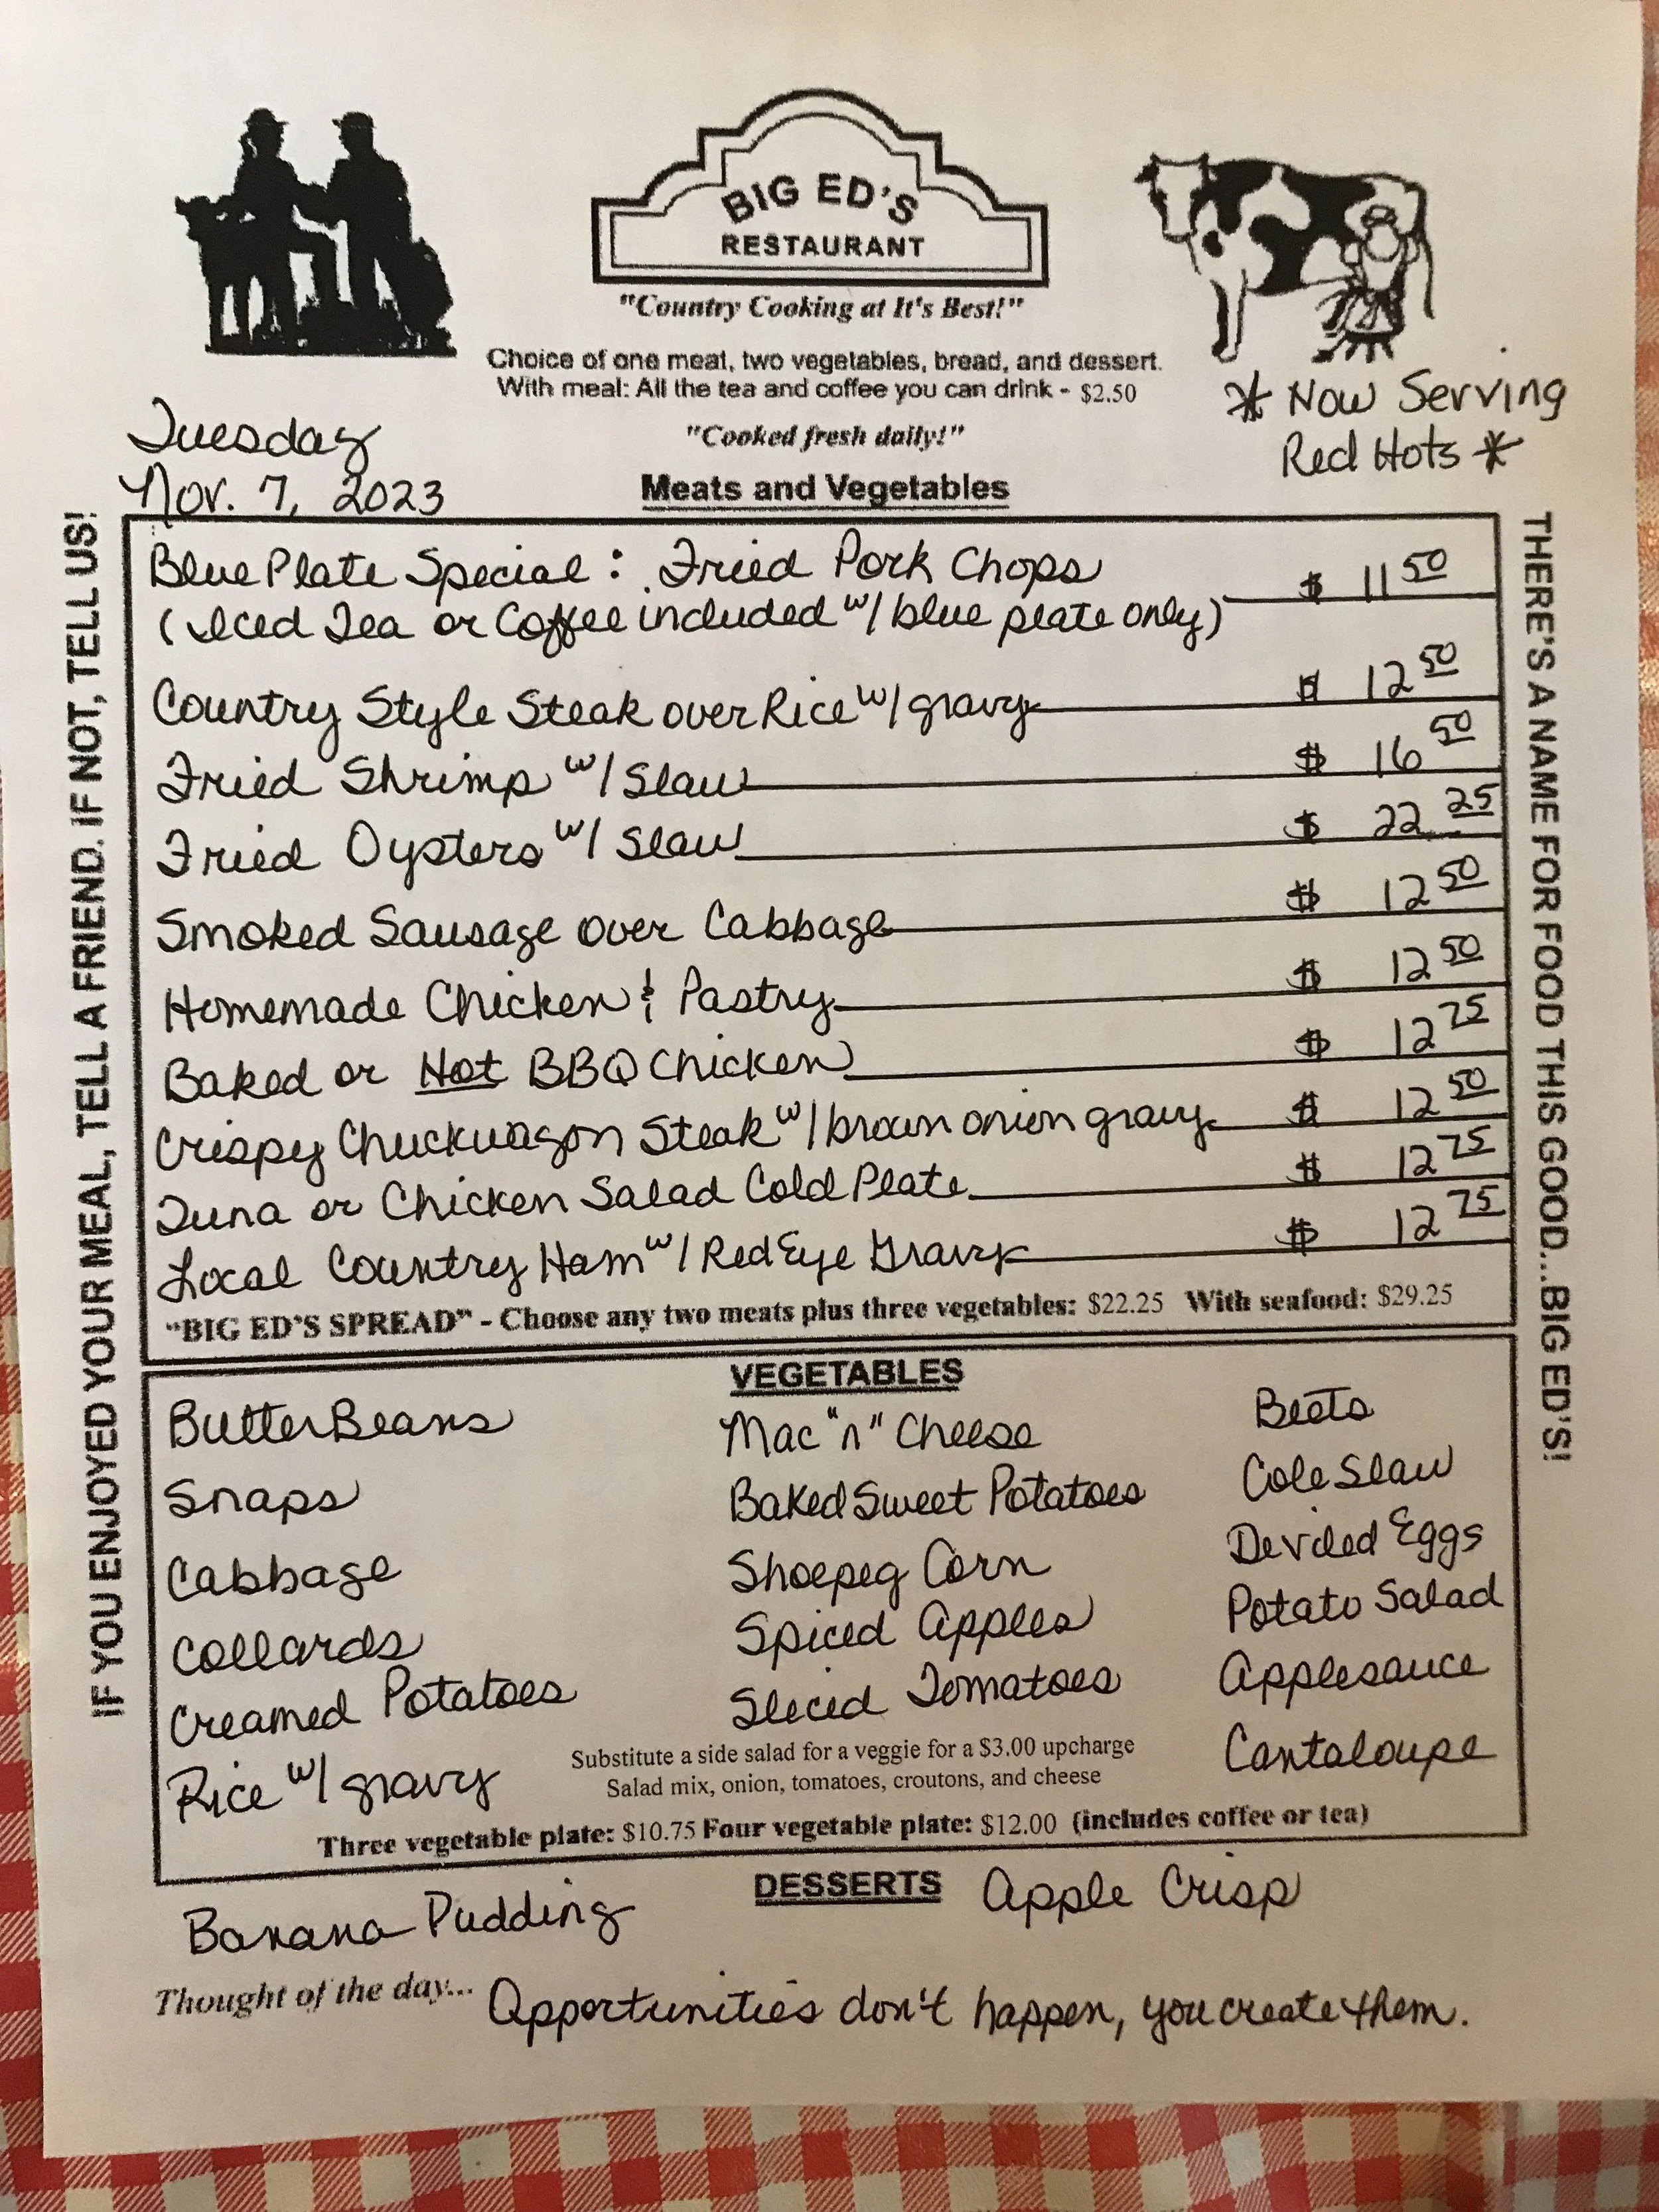 BIG ED'S
RESTAURANT
"Country Cooking at It's Best!"
Choice of one meat, two vegetables, bread, and dessert.
With meal: All the tea and coffee you can drink - $2.50
"Cooked fresh daily!"
* Now Serving
Red Hots *
Tuesday
Nov. 7, 2023
Meats and Vegetables
IF YOU ENJOYED YOUR MEAL, TELL A FRIEND. IF NOT, TELL US!
Blue Plate Special: Fried Pork Chops $ 11 50
(Iced Tea or Coffee included w/ blue plate only)
Country Style Steak over Rice w/ gravy $ 12 50
Fried Shrimp w/ Slaw $ 16 50
Fried Oysters w/ Slaw $ 22 25
Smoked Sausage over Cabbage $ 12 50
Homemade Chicken & Pastry $ 12 50
Baked or Hot BBQ Chicken $ 12 75
Crispy Chuckwagon Steak w/ brown onion gravy $ 12 50
Tuna or Chicken Salad Cold Plate $ 12 75
Local Country Ham w/ Red Eye Gravy $ 12 75
"BIG ED'S SPREAD" - Choose any two meats plus three vegetables: $22.25 With seafood: $29.25
THERE'S A NAME FOR FOOD THIS GOOD...BIG ED'S!
VEGETABLES
Butter Beans
Snaps
Cabbage
Collards
Creamed Potatoes
Rice w/ gravy
Mac "n" Cheese
Baked Sweet Potatoes
Shoepeg Corn
Spiced Apples
Sliced Tomatoes
Beets
Cole Slaw
Deviled Eggs
Potato Salad
Applesauce
Cantaloupe
Substitute a side salad for a veggie for a $3.00 upcharge
Salad mix, onion, tomatoes, croutons, and cheese
Three vegetable plate: $10.75 Four vegetable plate: $12.00 (includes coffee or tea)
DESSERTS
Banana Pudding
Apple Crisp
Thought of the day... Opportunities don't happen, you create them.